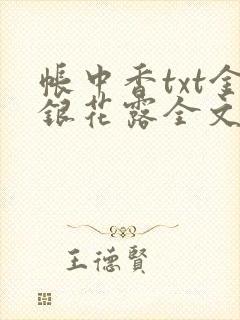 帳中香txt金
銀花露全文
王德賢